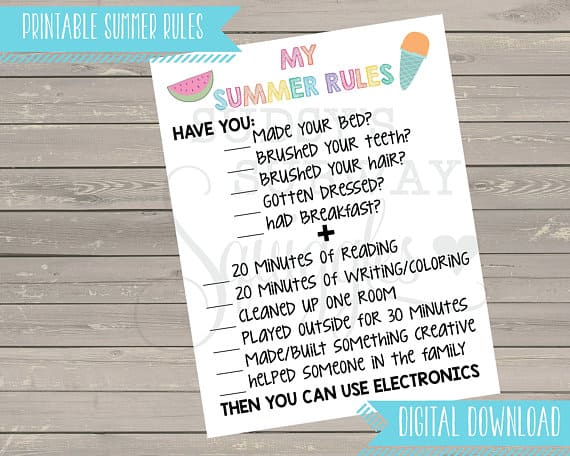 PRINTABLE SUMMER RULES
MY
SUMMER RULES
HAVE YOU:
___ MADE YOUR BED?
___ BRUSHED YOUR TEETH?
___ BRUSHED YOUR HAIR?
___ GOTTEN DRESSED?
___ HAD BREAKFAST?
+
___ 20 MINUTES OF READING
___ 20 MINUTES OF WRITING/COLORING
___ CLEANED UP ONE ROOM
___ PLAYED OUTSIDE FOR 30 MINUTES
___ MADE/BUILT SOMETHING CREATIVE
___ HELPED SOMEONE IN THE FAMILY
THEN YOU CAN USE ELECTRONICS
DIGITAL DOWNLOAD